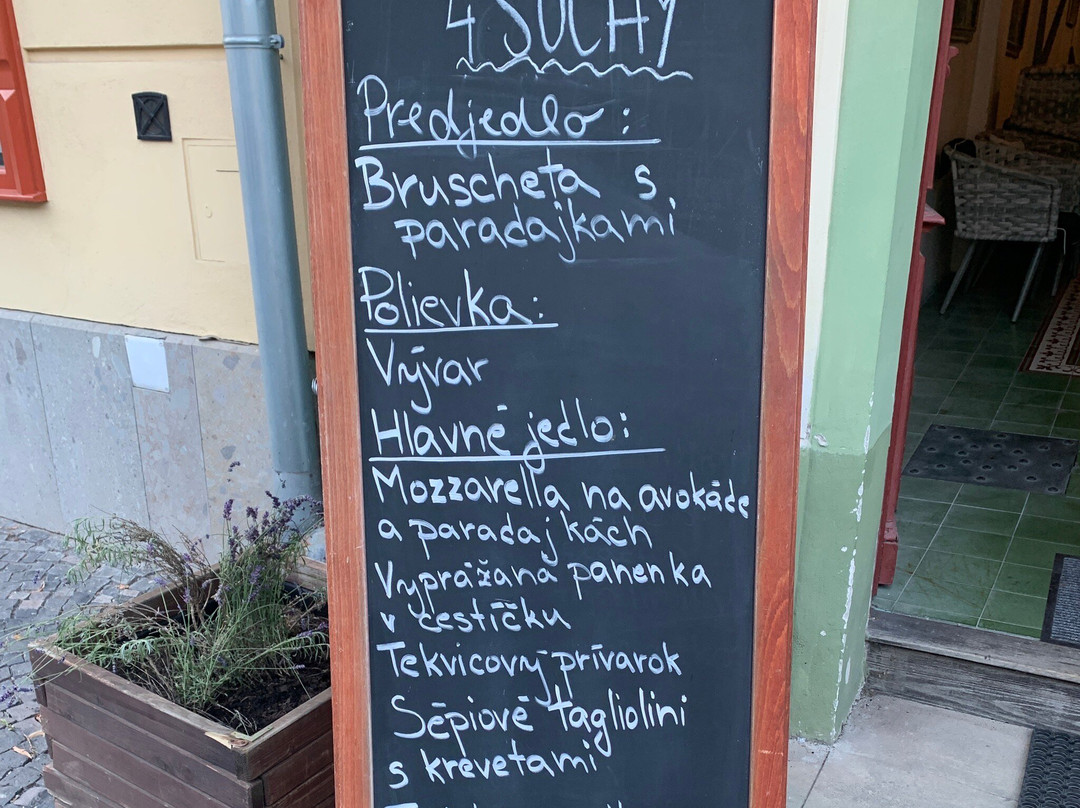 4 SUCHY
Predjedlo:
Bruscheta s
paradajkami
Polievka:
Vývar
Hlavné jedlo:
Mozzarella na avokáde
a paradajkách
Vyprážaná panenka
v cestíčku
Tekvicový prívarok
Sépiové tagliolini
s krevetami